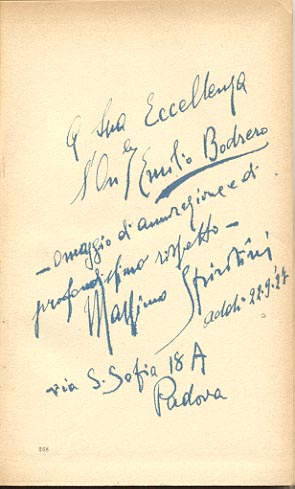 A Sua Eccellenza
l'On le Emilio Bodrero
- omaggio di ammirazione e di
profondissimo rispetto -
Massimo
addì 22.9.27
via S. Sofia 18 A
Padova
268